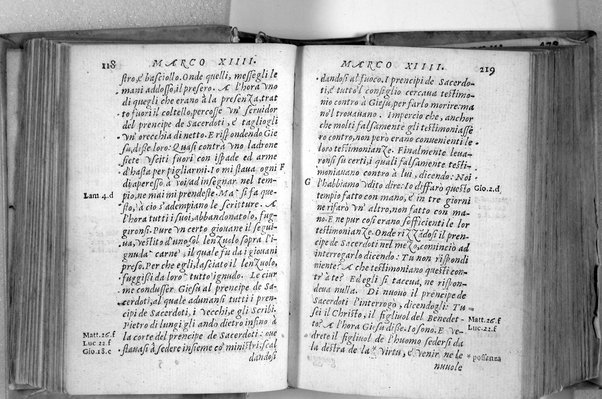 118
MARCO XIIII.
stro, è basciollo. Onde quelli, messegli le
mani addosso, il presero. A l'hora vno
di quegli che erano à la presenza, trat
to fuori il coltello, percosse vn' seruidor
del prencipe de Sacerdoti, è tagliogli
vn' orecchia di netto. E rispondendo Gie
su, disse loro: Quasi contrà vno ladrone
siete vsciti fuori con ispade ed arme
d'hasta per pigliarmi. Io mi staua ogni
di aperesso à voi ad insegnar nel tem-
pio, ne mai mi prendeste. Ma si fa que-
sto, à cio s'adempiano le scritture. A
l'hora tutti i suoi, abbandonatolo, fug
gironsi. Pure vn certo giouane il segui-
ua, vestito d'uno sol lenzuolo sopra l'i-
gnuda carne, il quale fu da i giouani
preso. Per che egli, lasciato il lenzuolo,
fuggissi da loro tutto ignudo. Le ciur
me condusser Giesu al prencipe de Sa-
cerdoti, al quale adunansi tutti i pren
cipi de Sacerdoti, i Vecchi, e gli Scribi.
Pietro di lungi gli ando dietro insino à
la corte del prencipe de Sacerdoti: oue
stauasi à sedere insieme co' ministri, scal
dandosi
F
Lam 4.d
Matt.26.f
Luc 22.f
Gio.18.c
MARCO XIIII.
219
dandosi al fuoco. I prencipi de Sacerdo-
ti, è tutto'l consiglio cercaua testimo-
nio contro à Giesu, per farlo morire: ma
no'l trouauano. Impercio che, anchor
che molti falsamente gli testimoniasse
ro contro, non però erano conuenienti le
loro testimonianze. Finalmente leua-
ronsi su certi, i quali falsamente testi-
moniauano contro à lui, dicendo: Noi
l'habbiamo vdito dire: Io disfarò questo
tempio fatto con mano, è in tre giorni
ne rifarò vn' altro, non fatto con ma-
no. E ne pur cosi erano sofficienti le lor
testimonianze. Onde rizzâdosi il pren-
cipe de Sacerdoti nel mezo, comincio ad
interrogarlo dicendo: Tu non rispondi
niente? A che testimoniano questi con-
tr'à te? Ed egli si taceua, ne rispon-
deua nulla. Di nuouo il prencipe de
Sacerdoti l'interrogo, dicendogli: Tu
sei il Christo, il figliuol del Benedet-
to? A l'hora Giesu disse: Io sono. E Ve-
drete il figliuol de l'huomo sedersi da
la destra de la virtu, è venir ne le
nuuole
G
Gio.2.d
Matt.26.f
Luc.22.f
possenza